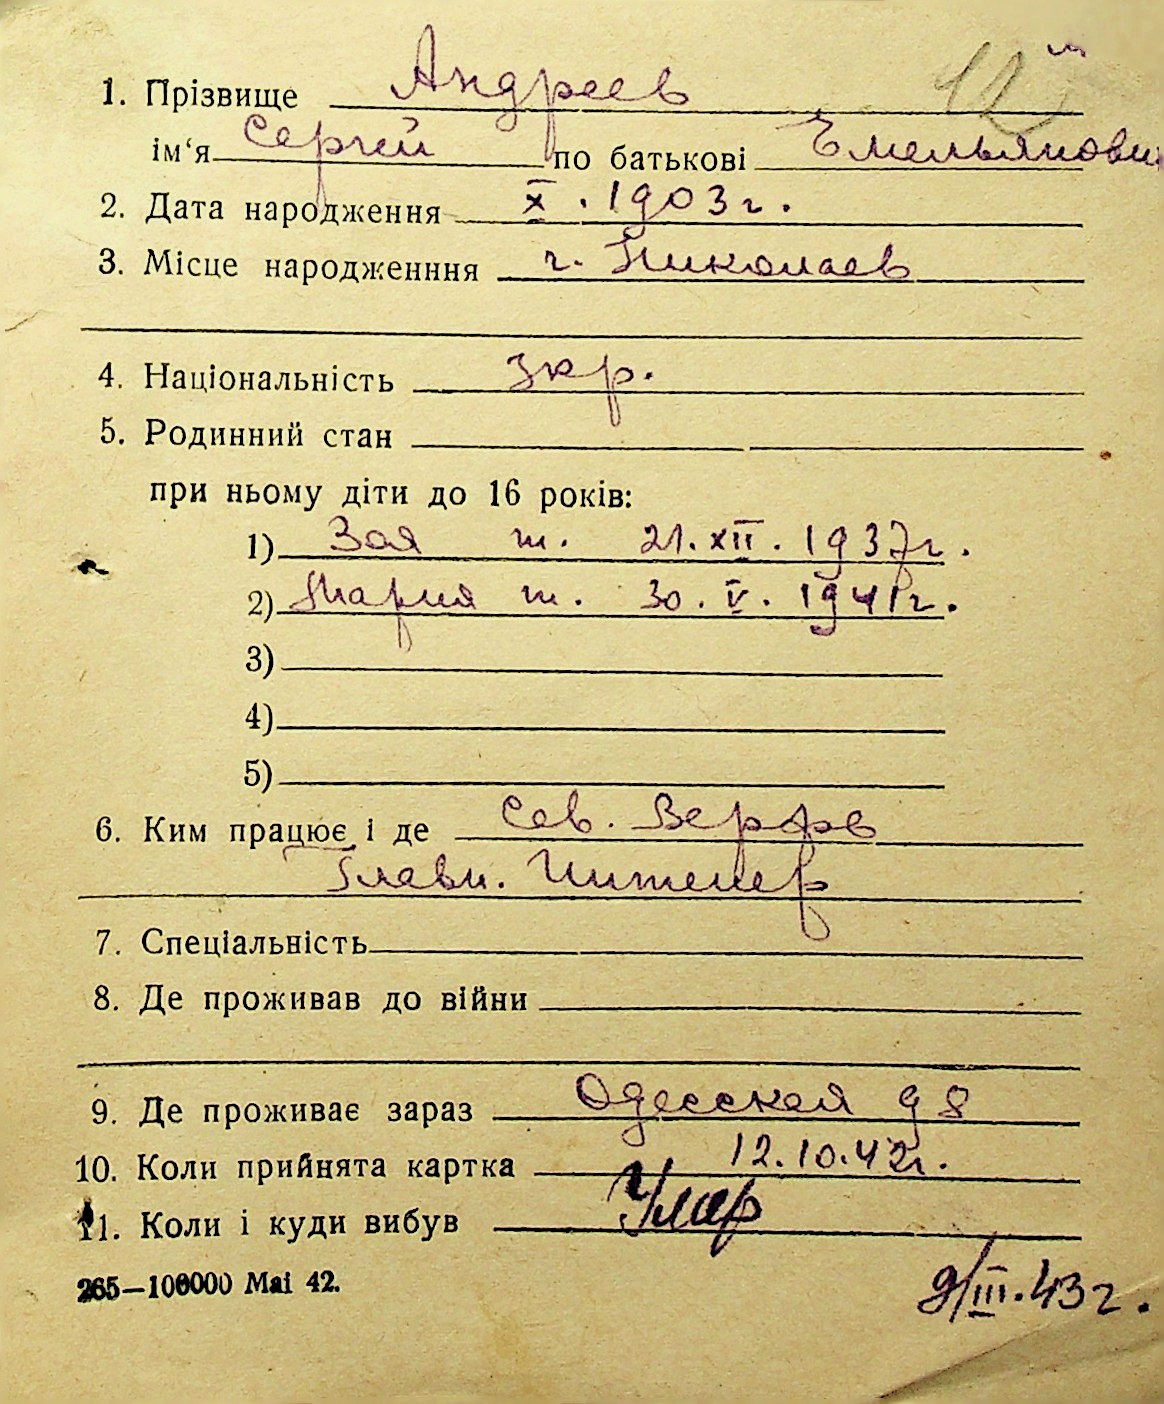 1. Прізвище Андреев 12
ім‘я Сергей по батькові Емельянович
2. Дата народження X. 1903 г.
3. Місце народженння г. Николаев
4. Національність Укр.
5. Родинний стан
при ньому діти до 16 років:
1) Зоя ж. 21. XII. 1937 г.
2) Мария ж. 30. V. 1941 г.
3)
4)
5)
6. Ким працює і де Сев. Верфь
Главн. Инженер
7. Спеціальність
8. Де проживав до війни
9. Де проживає зараз Одесская 98
10. Коли прийнята картка 12.10.42 г.
11. Коли і куди вибув Умер
265—100000 Mai 42.
9/III. 43 г.